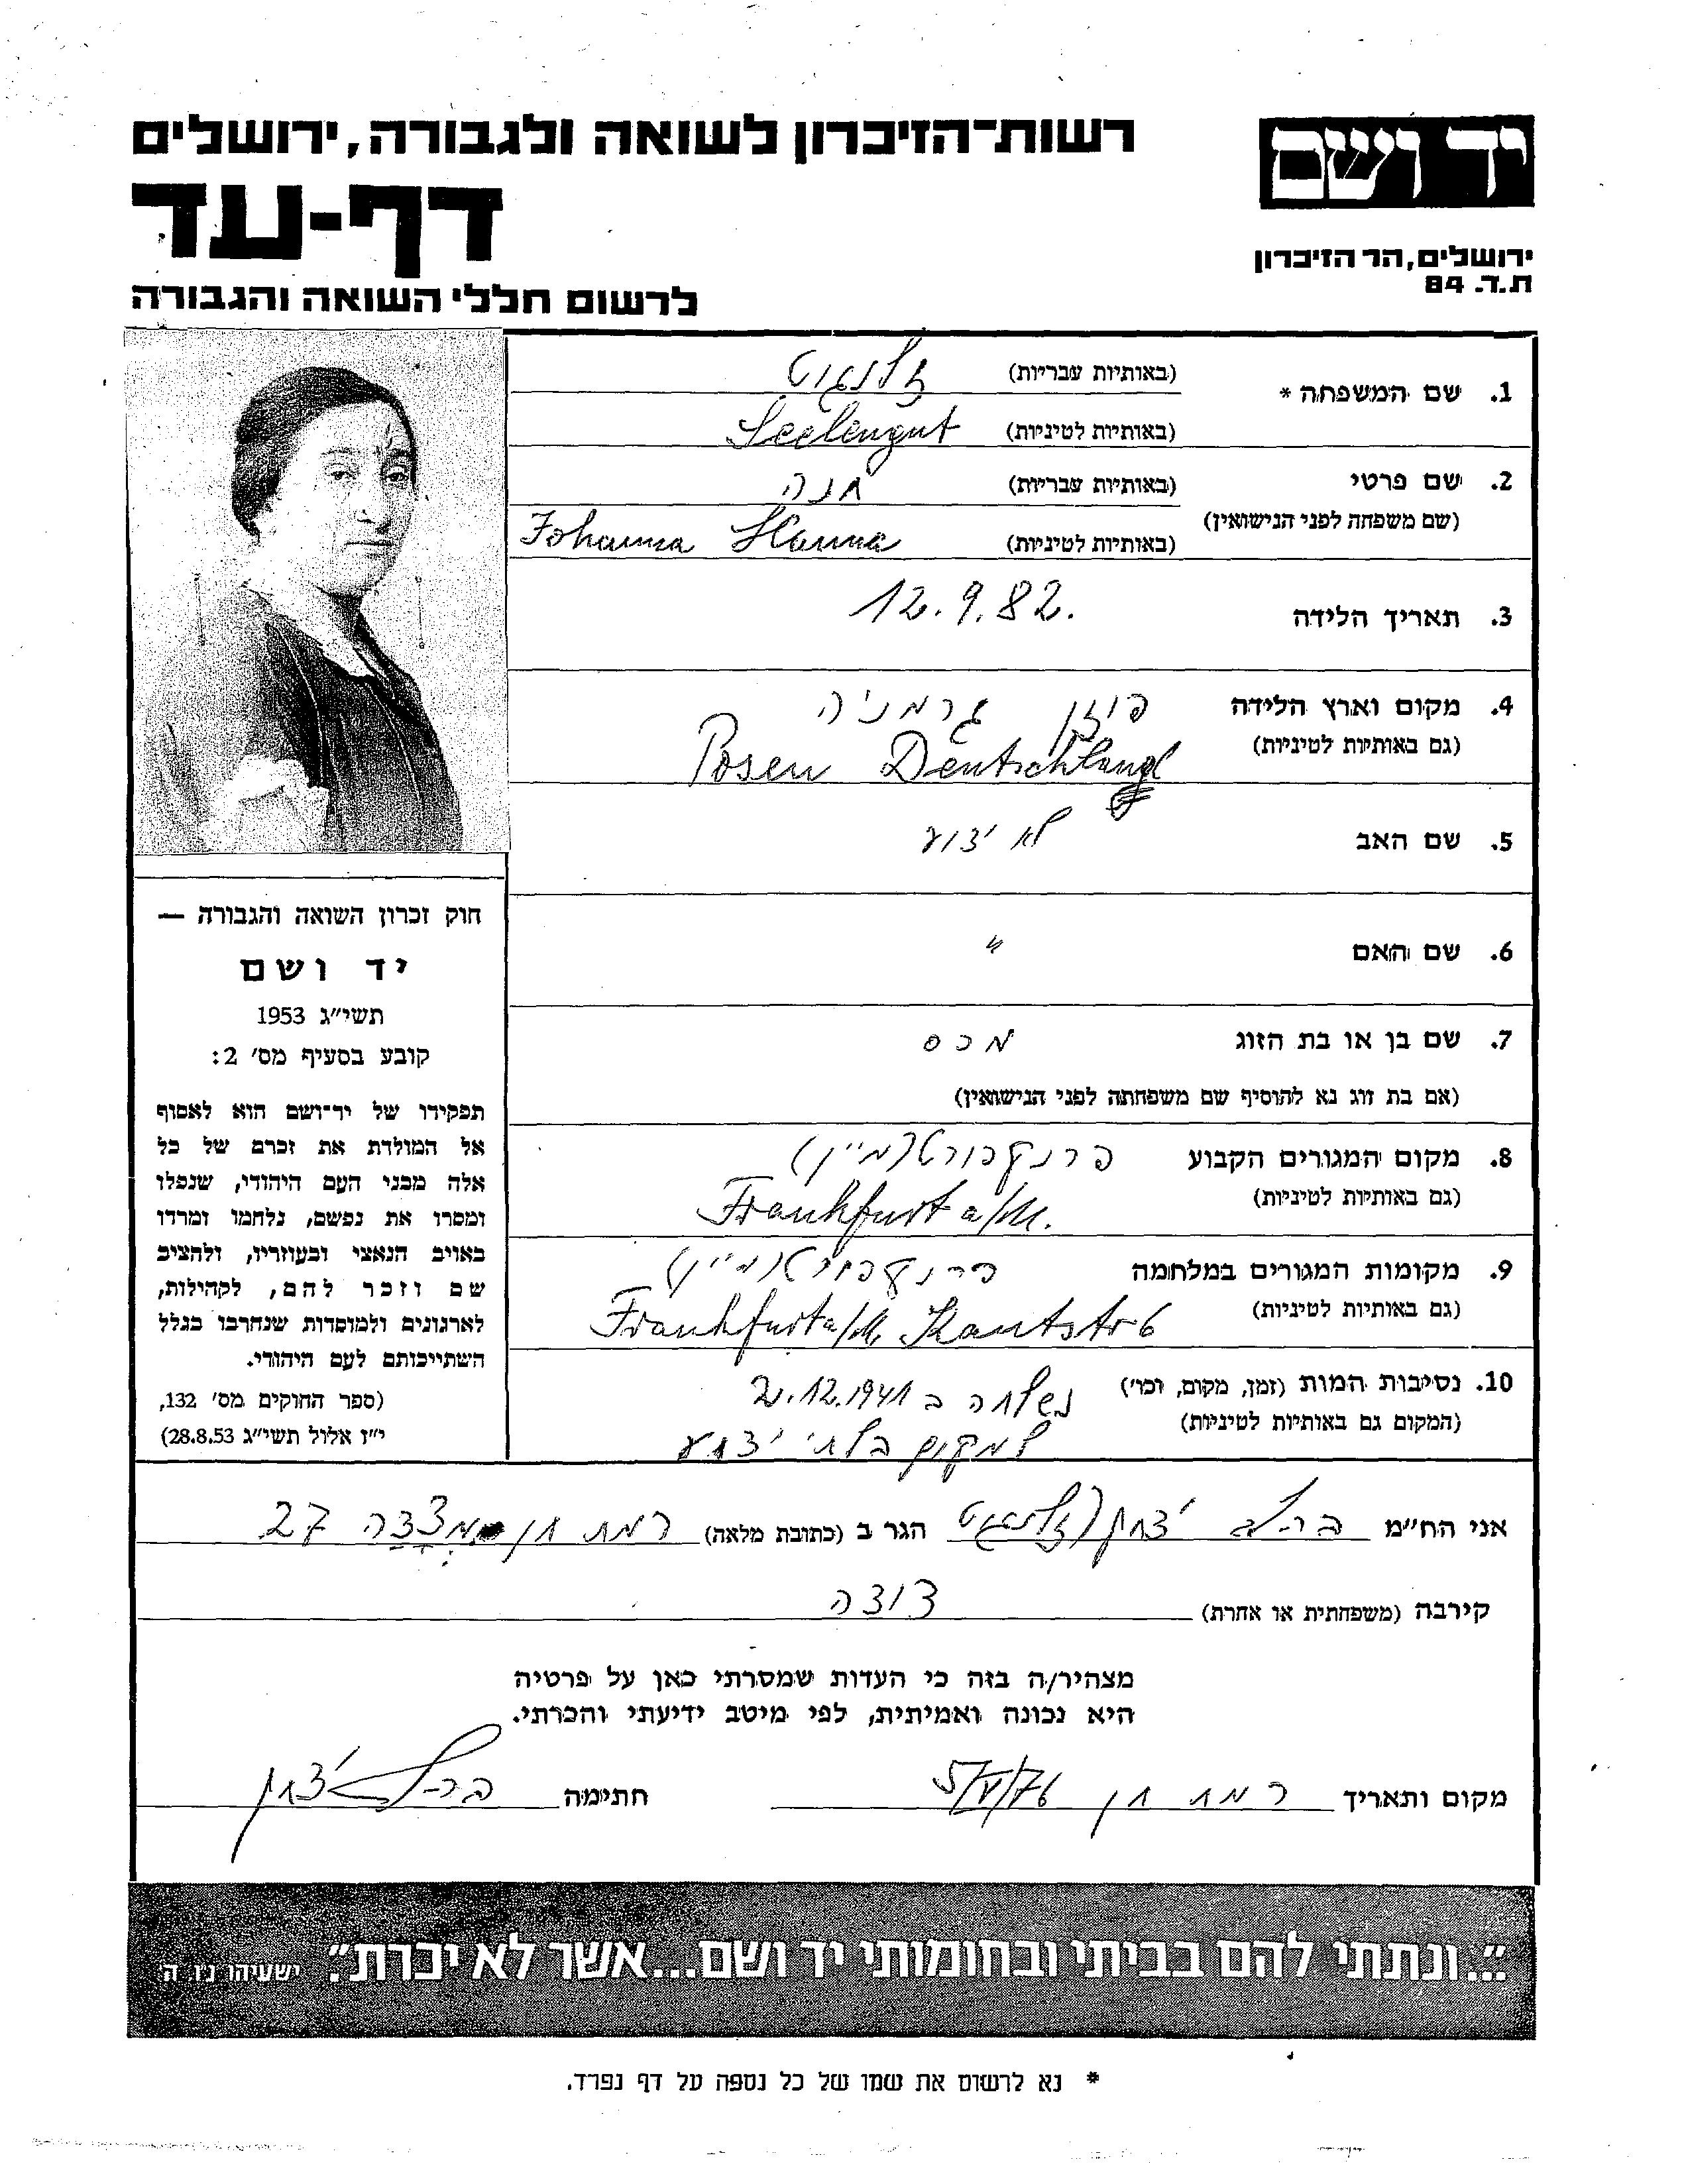 יד ושם
ירושלים, הר הזיכרון
ת.ד. 84
רשות־הזיכרון לשואה ולגבורה, ירושלים
דף-עד
לרשום חללי השואה והגבורה
1. שם המשפחה * (באותיות עבריות) זלנגוט
(באותיות לטיניות) Seelengut
2. שם פרטי (באותיות עבריות) חנה
(שם משפחה לפני הנישואין)
(באותיות לטיניות) Johanna Hanna
3. תאריך הלידה 12.9.82.
4. מקום וארץ הלידה פוזן גרמניה
(גם באותיות לטיניות) Posen Deutschland
5. שם האב לא ידוע
6. שם האם "
7. שם בן או בת הזוג מכס
(אם בת זוג נא להוסיף שם משפחתה לפני הנישואין)
8. מקום המגורים הקבוע פרנקפורט (מיין)
(גם באותיות לטיניות) Frankfurt a/M.
9. מקומות המגורים במלחמה פרנקפורט (מיין)
(גם באותיות לטיניות) Frankfurt a/M. Kantstr 6
10. נסיבות המות (זמן, מקום, וכו') נשלחה ב 2.12.1941
(המקום גם באותיות לטיניות) למקום בלתי ידוע
חוק זכרון השואה והגבורה —
יד ושם
תשי"ג 1953
קובע בסעיף מס' 2:
תפקידו של יד־ושם הוא לאסוף
אל המולדת את זכרם של כל
אלה מבני העם היהודי, שנפלו
ומסרו את נפשם, נלחמו ומרדו
באויב הנאצי ובעוזריו, ולהציב
שם וזכר להם, לקהילות,
לארגונים ולמוסדות שנחרבו בגלל
השתייכותם לעם היהודי.
(ספר החוקים מס' 132,
י"ז אלול תשי"ג 28.8.53)
אני הח"מ יצחק (זלנגוט הגר ב (כתובת מלאה) רמת חן מצדה 27
קירבה (משפחתית או אחרת) דודה
מצהיר/ה בזה כי העדות שמסרתי כאן על פרטיה
היא נכונה ואמיתית, לפי מיטב ידיעתי והכרתי.
מקום ותאריך רמת חן 5/V/76 חתימה יצחק
"...ונתתי להם בביתי ובחומותי יד ושם...אשר לא יכרת". ישעיהו נו ה
* נא לרשום את שמו של כל נספה על דף נפרד.